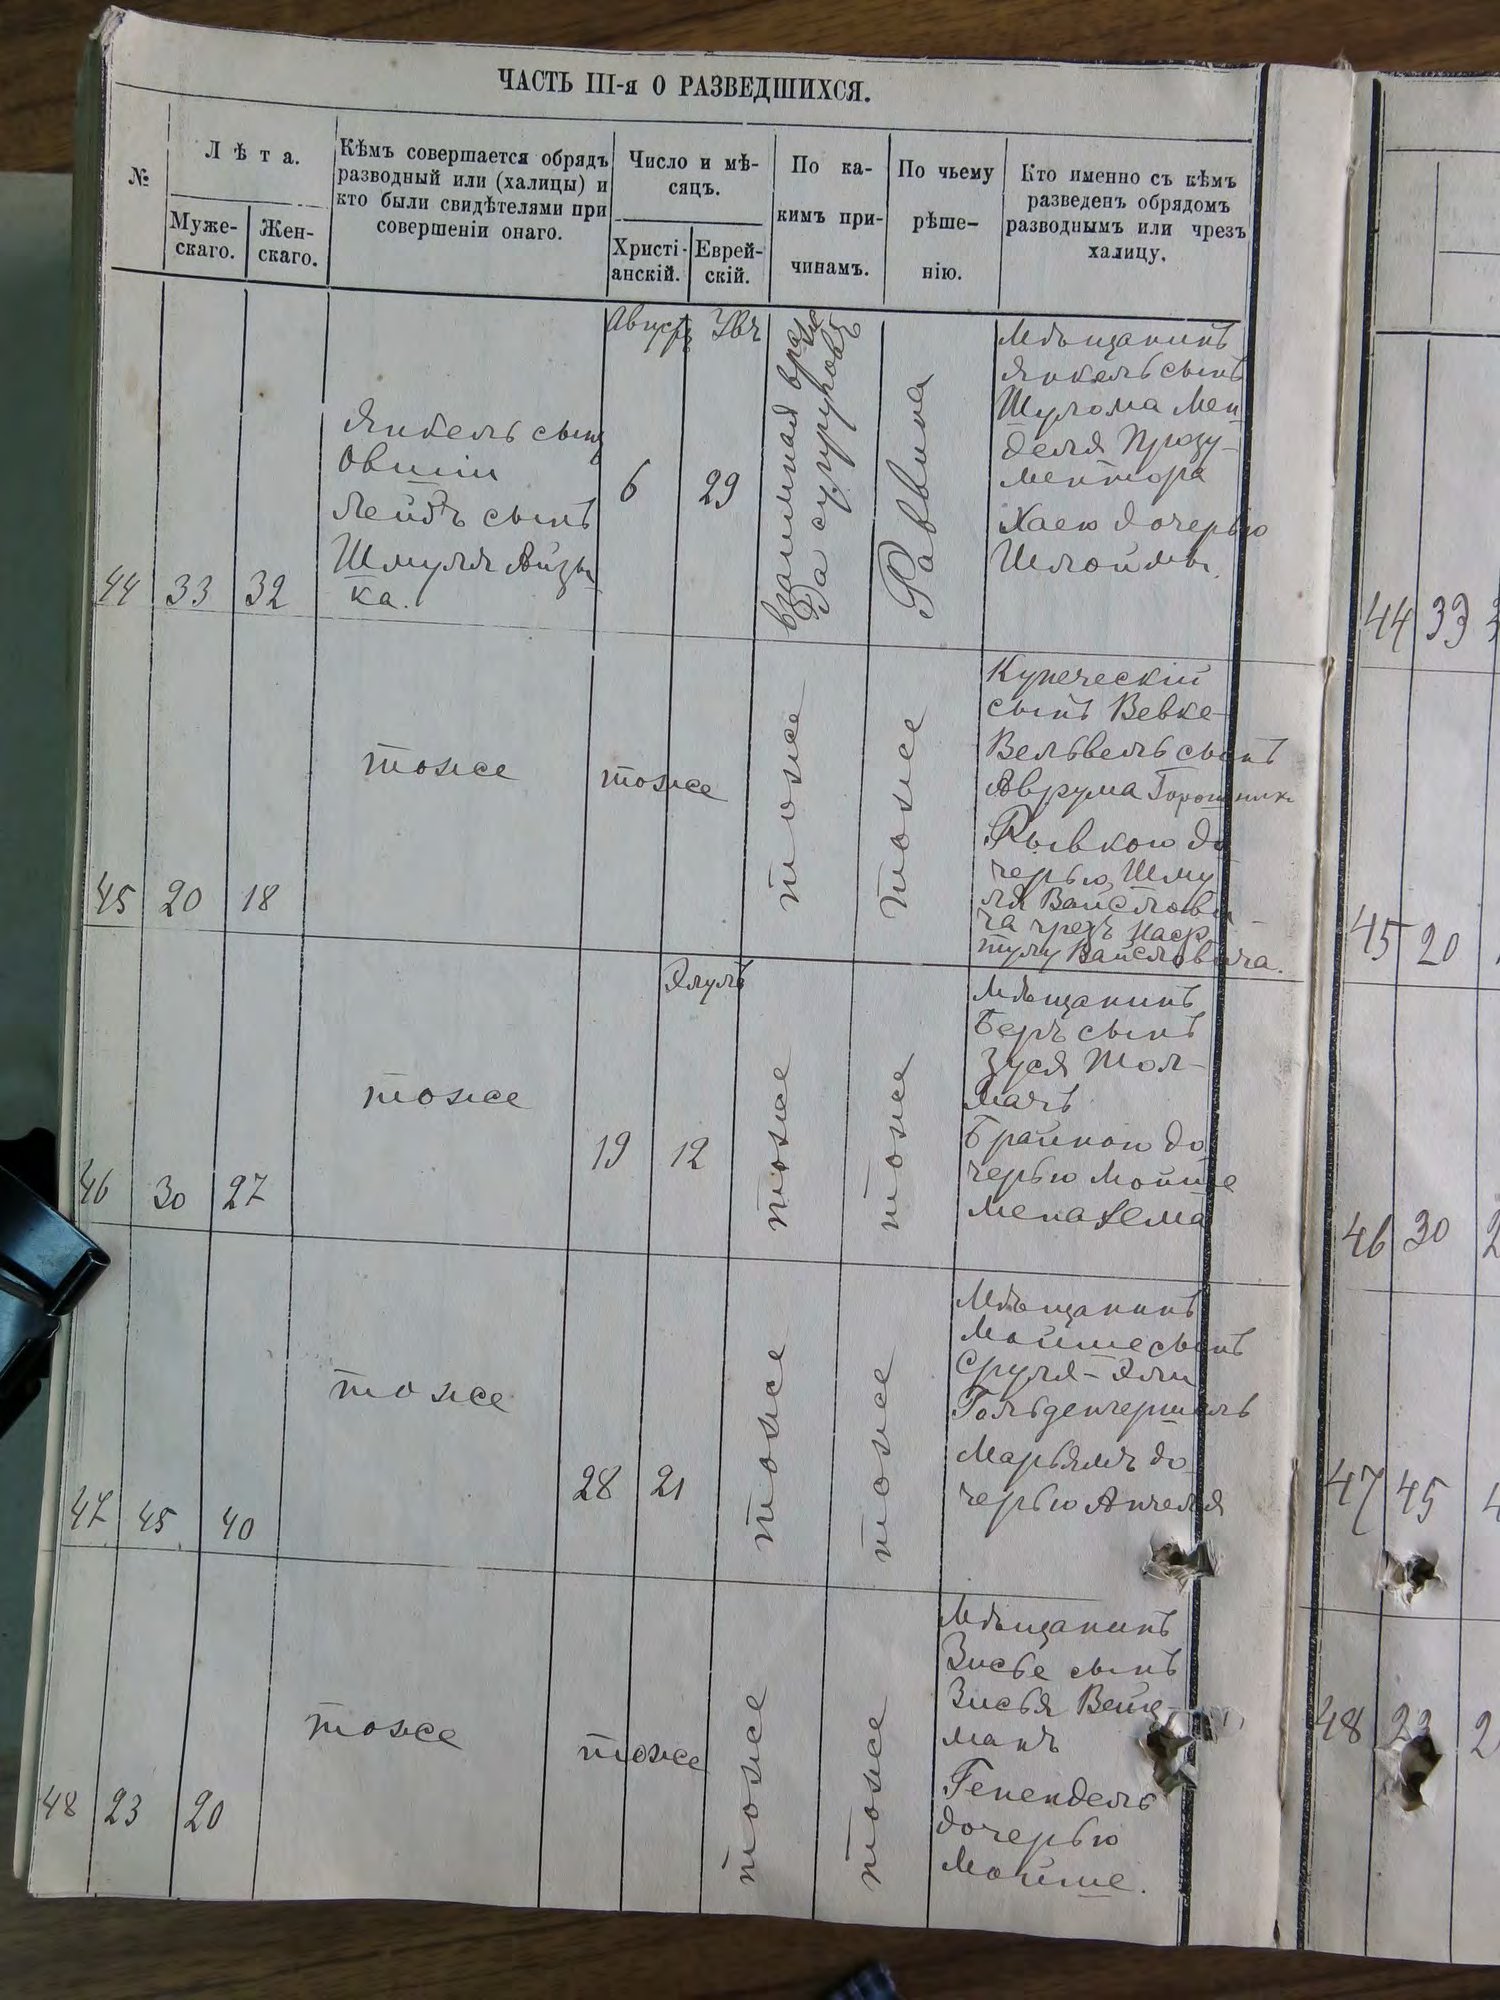 ЧАСТЬ III-я О РАЗВЕДШИХСЯ.
№
Лѣта.
Муже-
скаго.
Жен-
скаго.
Кѣмъ совершается обрядъ
разводный или (халицы) и
кто были свидѣтелями при
совершеніи онаго.
Число и мѣ-
сяцъ.
Христі-
анскій.
Еврей-
скій.
По ка-
кимъ при-
чинамъ.
По чьему
рѣше-
нію.
Кто именно съ кѣмъ
разведенъ обрядомъ
разводнымъ или чрезъ
халицу.
44
33
32
Янкель сынъ
Овшіи
Лейбъ сынъ
Шмуля Айзи-
ка.
Августъ
6
29
взаимная вра
жда супруговъ
Раввина
Мѣщанинъ
Янкель сынъ
Шулома Мен
деля Прозу-
ментора
Хаею дочерью
Шлоймы.
45
20
18
тоже
тоже
тоже
тоже
Купеческій
сынъ Вевке-
Вельвель сынъ
Аврума
Рывкою до
черью Шму
ля Вайслови
ча чрезъ
Вайсловича.
46
30
27
тоже
19
Элулъ
12
тоже
тоже
Мѣщанинъ
Беръ сынъ
Зуся Тол-
мачъ
Брайною до
черью Мойше
Менахема
47
45
40
тоже
28
21
тоже
тоже
Мѣщанинъ
Мойше сынъ
Сруля-Эли
Марьямъ до
черью Анчеля
48
23
20
тоже
тоже
тоже
тоже
Мѣщанинъ
Зисье сынъ
Зисья
манъ
Генендель
дочерью
Мойше.
44
33
45
20
46
30
2
47
45
4
48
23
2